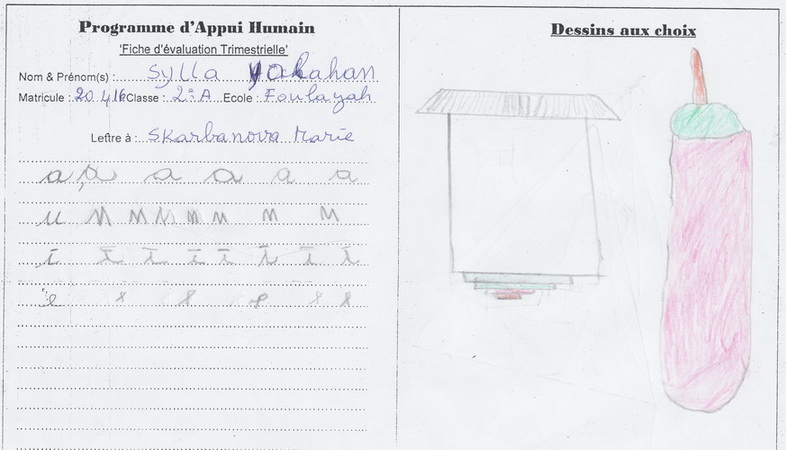 Programme d'Appui Humain
'Fiche d'évaluation Trimestrielle'
Nom & Prénom(s) : Sylla
Matricule : 20 416 Classe : 2è A Ecole : Foulayah
Lettre à : Skarbanova Marie
a a a a a a
u u u u u u u
i i i i i i i i
e e e e e e
Dessins aux choix